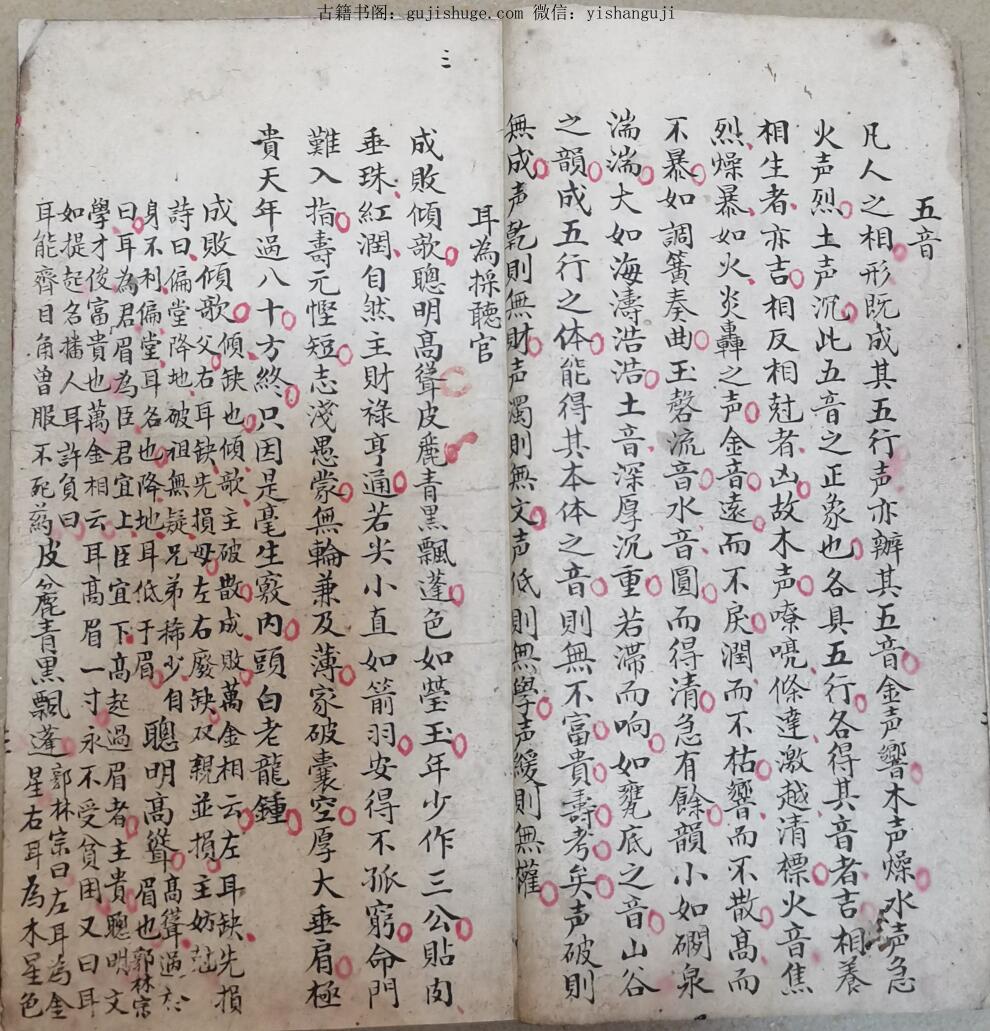 古籍书阁：gujishuge.com 微信：yishanguji
五音
凡人之相形既成其五行声亦辦其五音金声響木声燥水声急
火声烈土声沉此五音之正象也各具五行各得其音者吉相養
相生者亦吉相反相尅者凶故木声嘹喨條達激越清標火音焦
烈燥暴如火炎轟之声金音遠而不戾潤而不枯響而不散高而
不暴如調簧奏曲玉磬流音水音圓而得清急有餘韻小如磵泉
湍湍大如海濤浩浩土音深厚沉重若滞而响如甕底之音山谷
之韻成五行之体能得其本体之音則無不富貴壽考矣声破則
無成声乾則無財声濁則無文声低則無學声緩則無權
三
耳為採聽官
成敗傾歌聰明高聳皮麁青黑飄蓬色如瑩玉年少作三公貼肉
垂珠紅潤自然主財祿亨通若尖小直如箭羽安得不孤窮命門
難入指壽元慳短志淺愚蒙無輪兼及薄家破囊空厚大垂肩極
貴天年過八十方終只因是毫生竅内頭白老龍鍾
成敗傾歌傾缺也傾歌主破散成敗萬金相云左耳缺先損
父右耳缺先損母左右廢缺双親並損主妨尅
詩曰偏堂降地破祖無疑兄弟稀少自聰明高聳高聳過於
身不利偏堂耳名也降地耳低于眉眉也郭林宗
曰耳為君眉為臣君宜上臣宜下高起過眉者主貴聰明文
學才俊富貴也萬金相云耳高眉一寸永不受貧困又曰耳
如提起名播人耳許負曰皮麁青黑飄蓬郭林宗曰左耳為金
耳能齊日角曾服不死葯星右耳為木星色